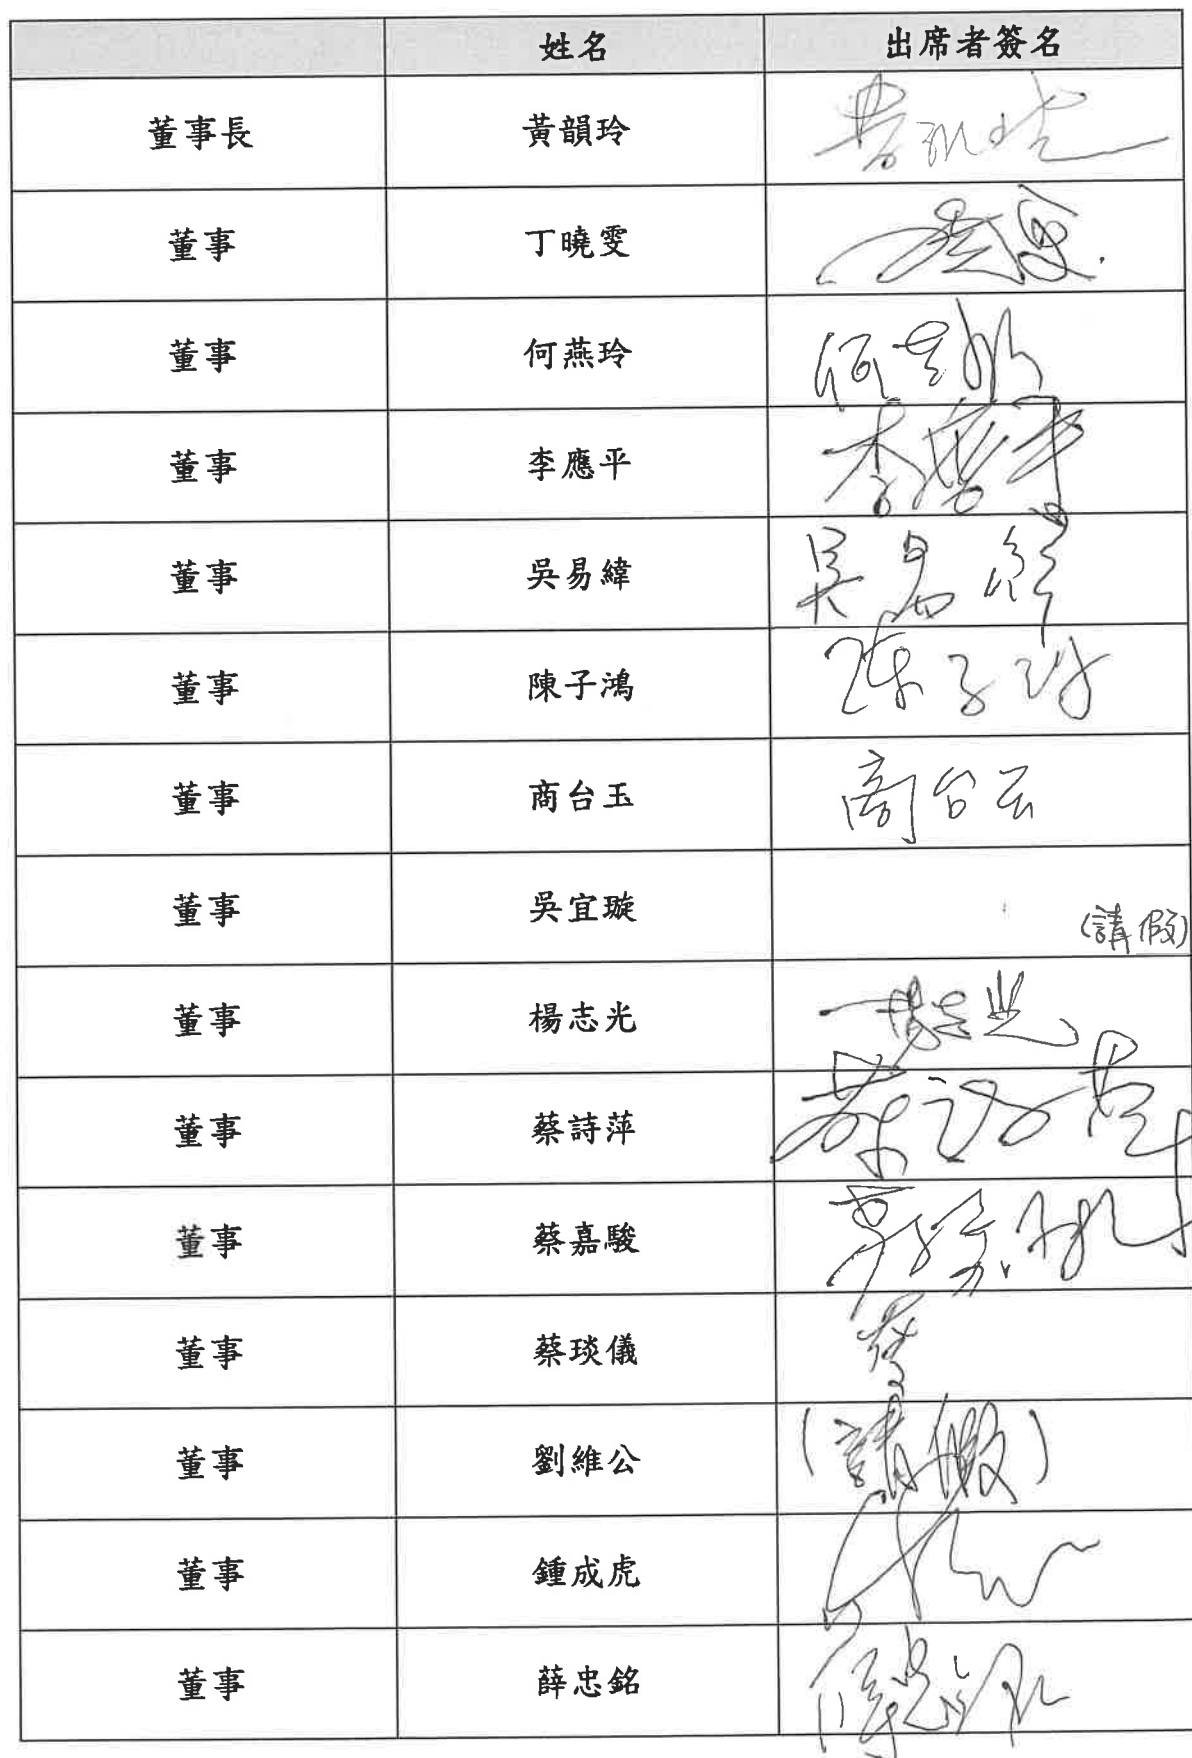 姓名 出席者簽名
董事長 黃韻玲
董事 丁曉雯
董事 何燕玲 何燕玲
董事 李應平 李應平
董事 吳易緯 吳易緯
董事 陳子鴻 陳子鴻
董事 商台玉 商台玉
董事 吳宜璇 (請假)
董事 楊志光 楊志光
董事 蔡詩萍 蔡詩萍
董事 蔡嘉駿
董事 蔡琰儀
董事 劉維公 (請假)
董事 鍾成虎
董事 薛忠銘